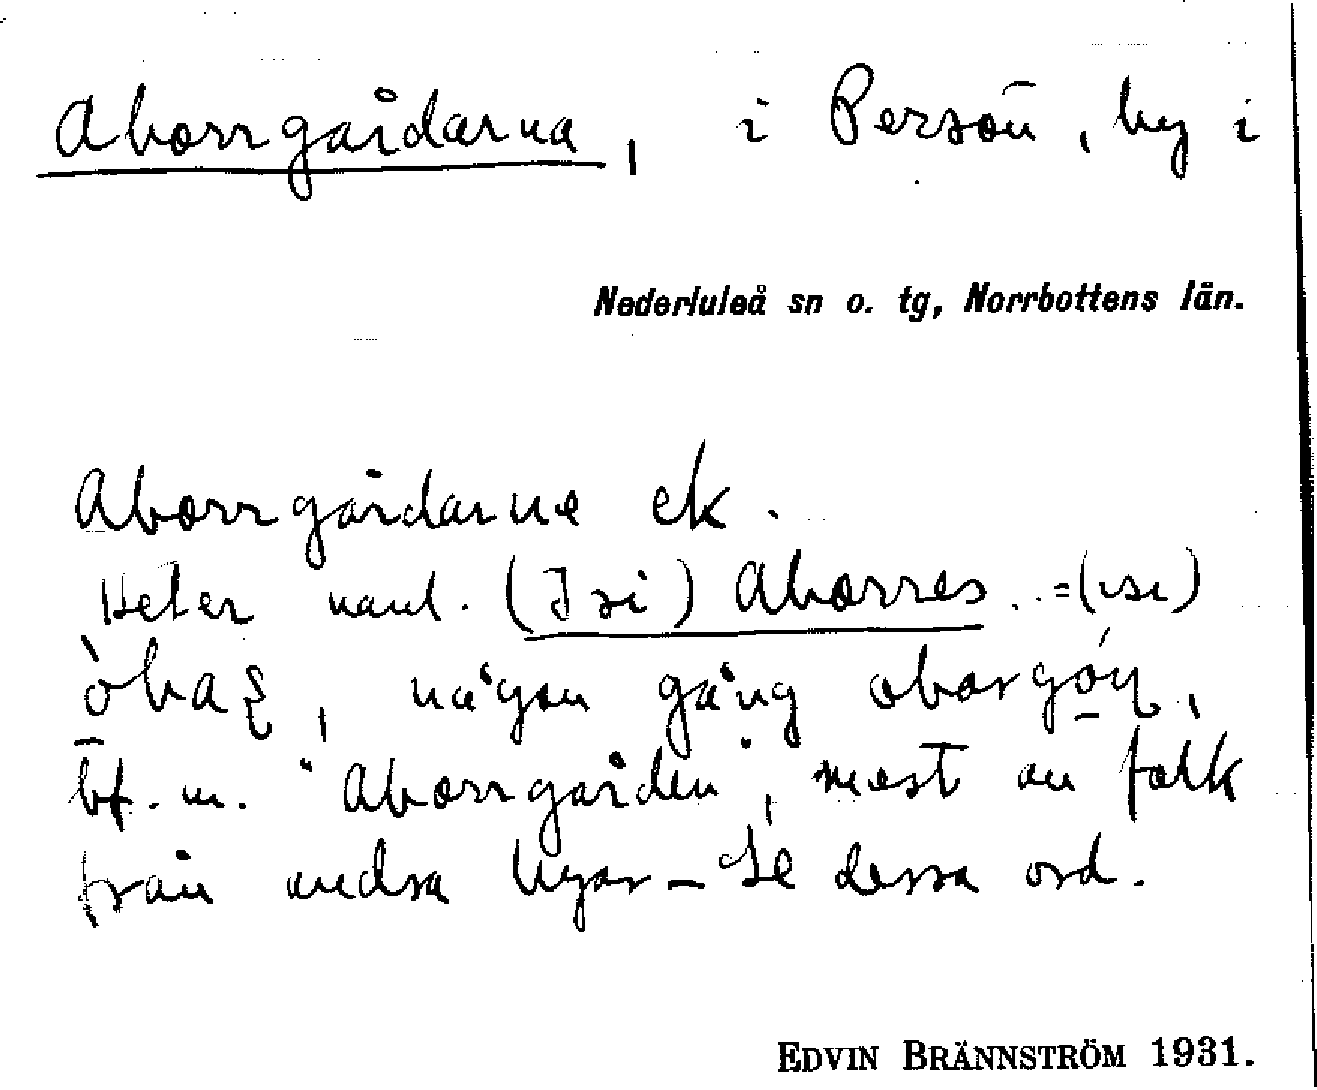 Aborrgårdarna, i Persön, by i
Nederluleå sn o. tg, Norrbottens län.
Aborrgårdarne ek.
Heter vanl. (I si) Aborres. =(ısı)
någon gång
bf. m. "Aborrgården", mest av folk
från andra byar – Se dessa ord.
EDVIN BRÄNNSTRÖM 1931.